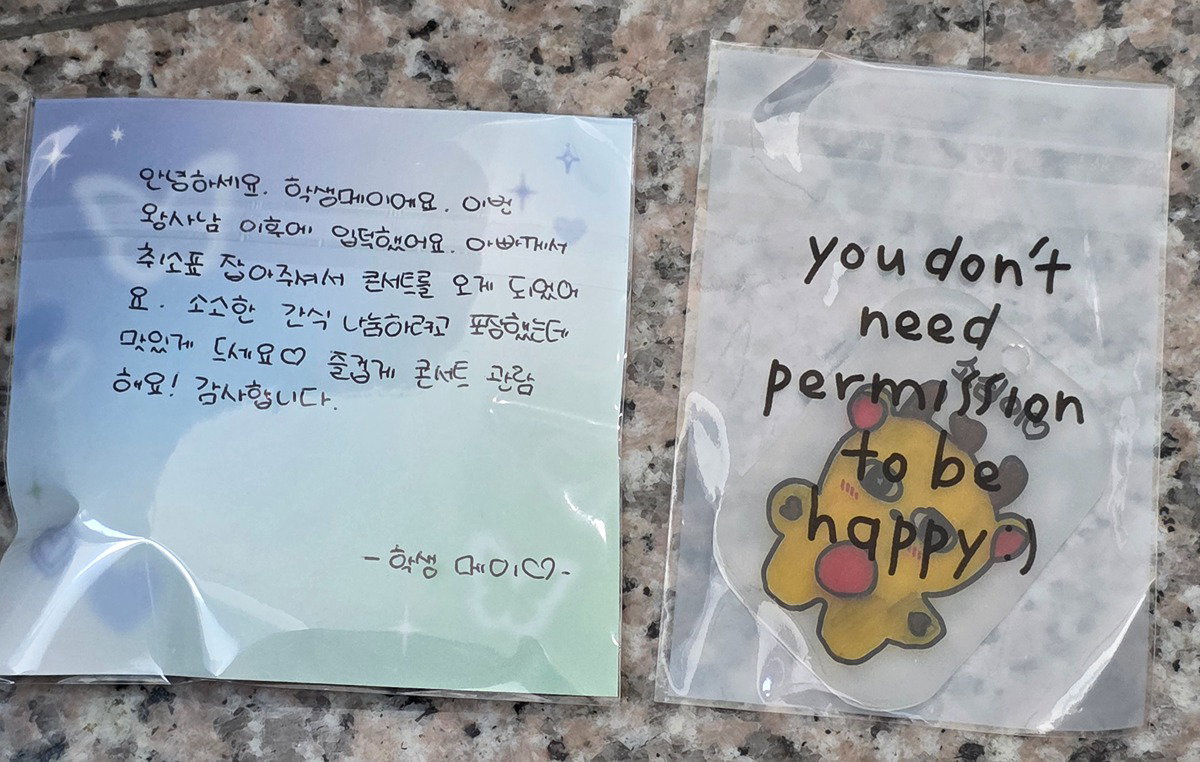 안녕하세요. 학생메이에요. 이번
왕사남 이후에 입덕했어요. 아빠께서
취소표 잡아주셔서 콘서트를 오게 되었어
요. 소소한 간식 나눔하려고 포장했는데
맛있게 드세요♡ 즐겁게 콘서트 관람
해요! 감사합니다.
- 학생 메이♡-
you don't
need
permission
to be
happy:)